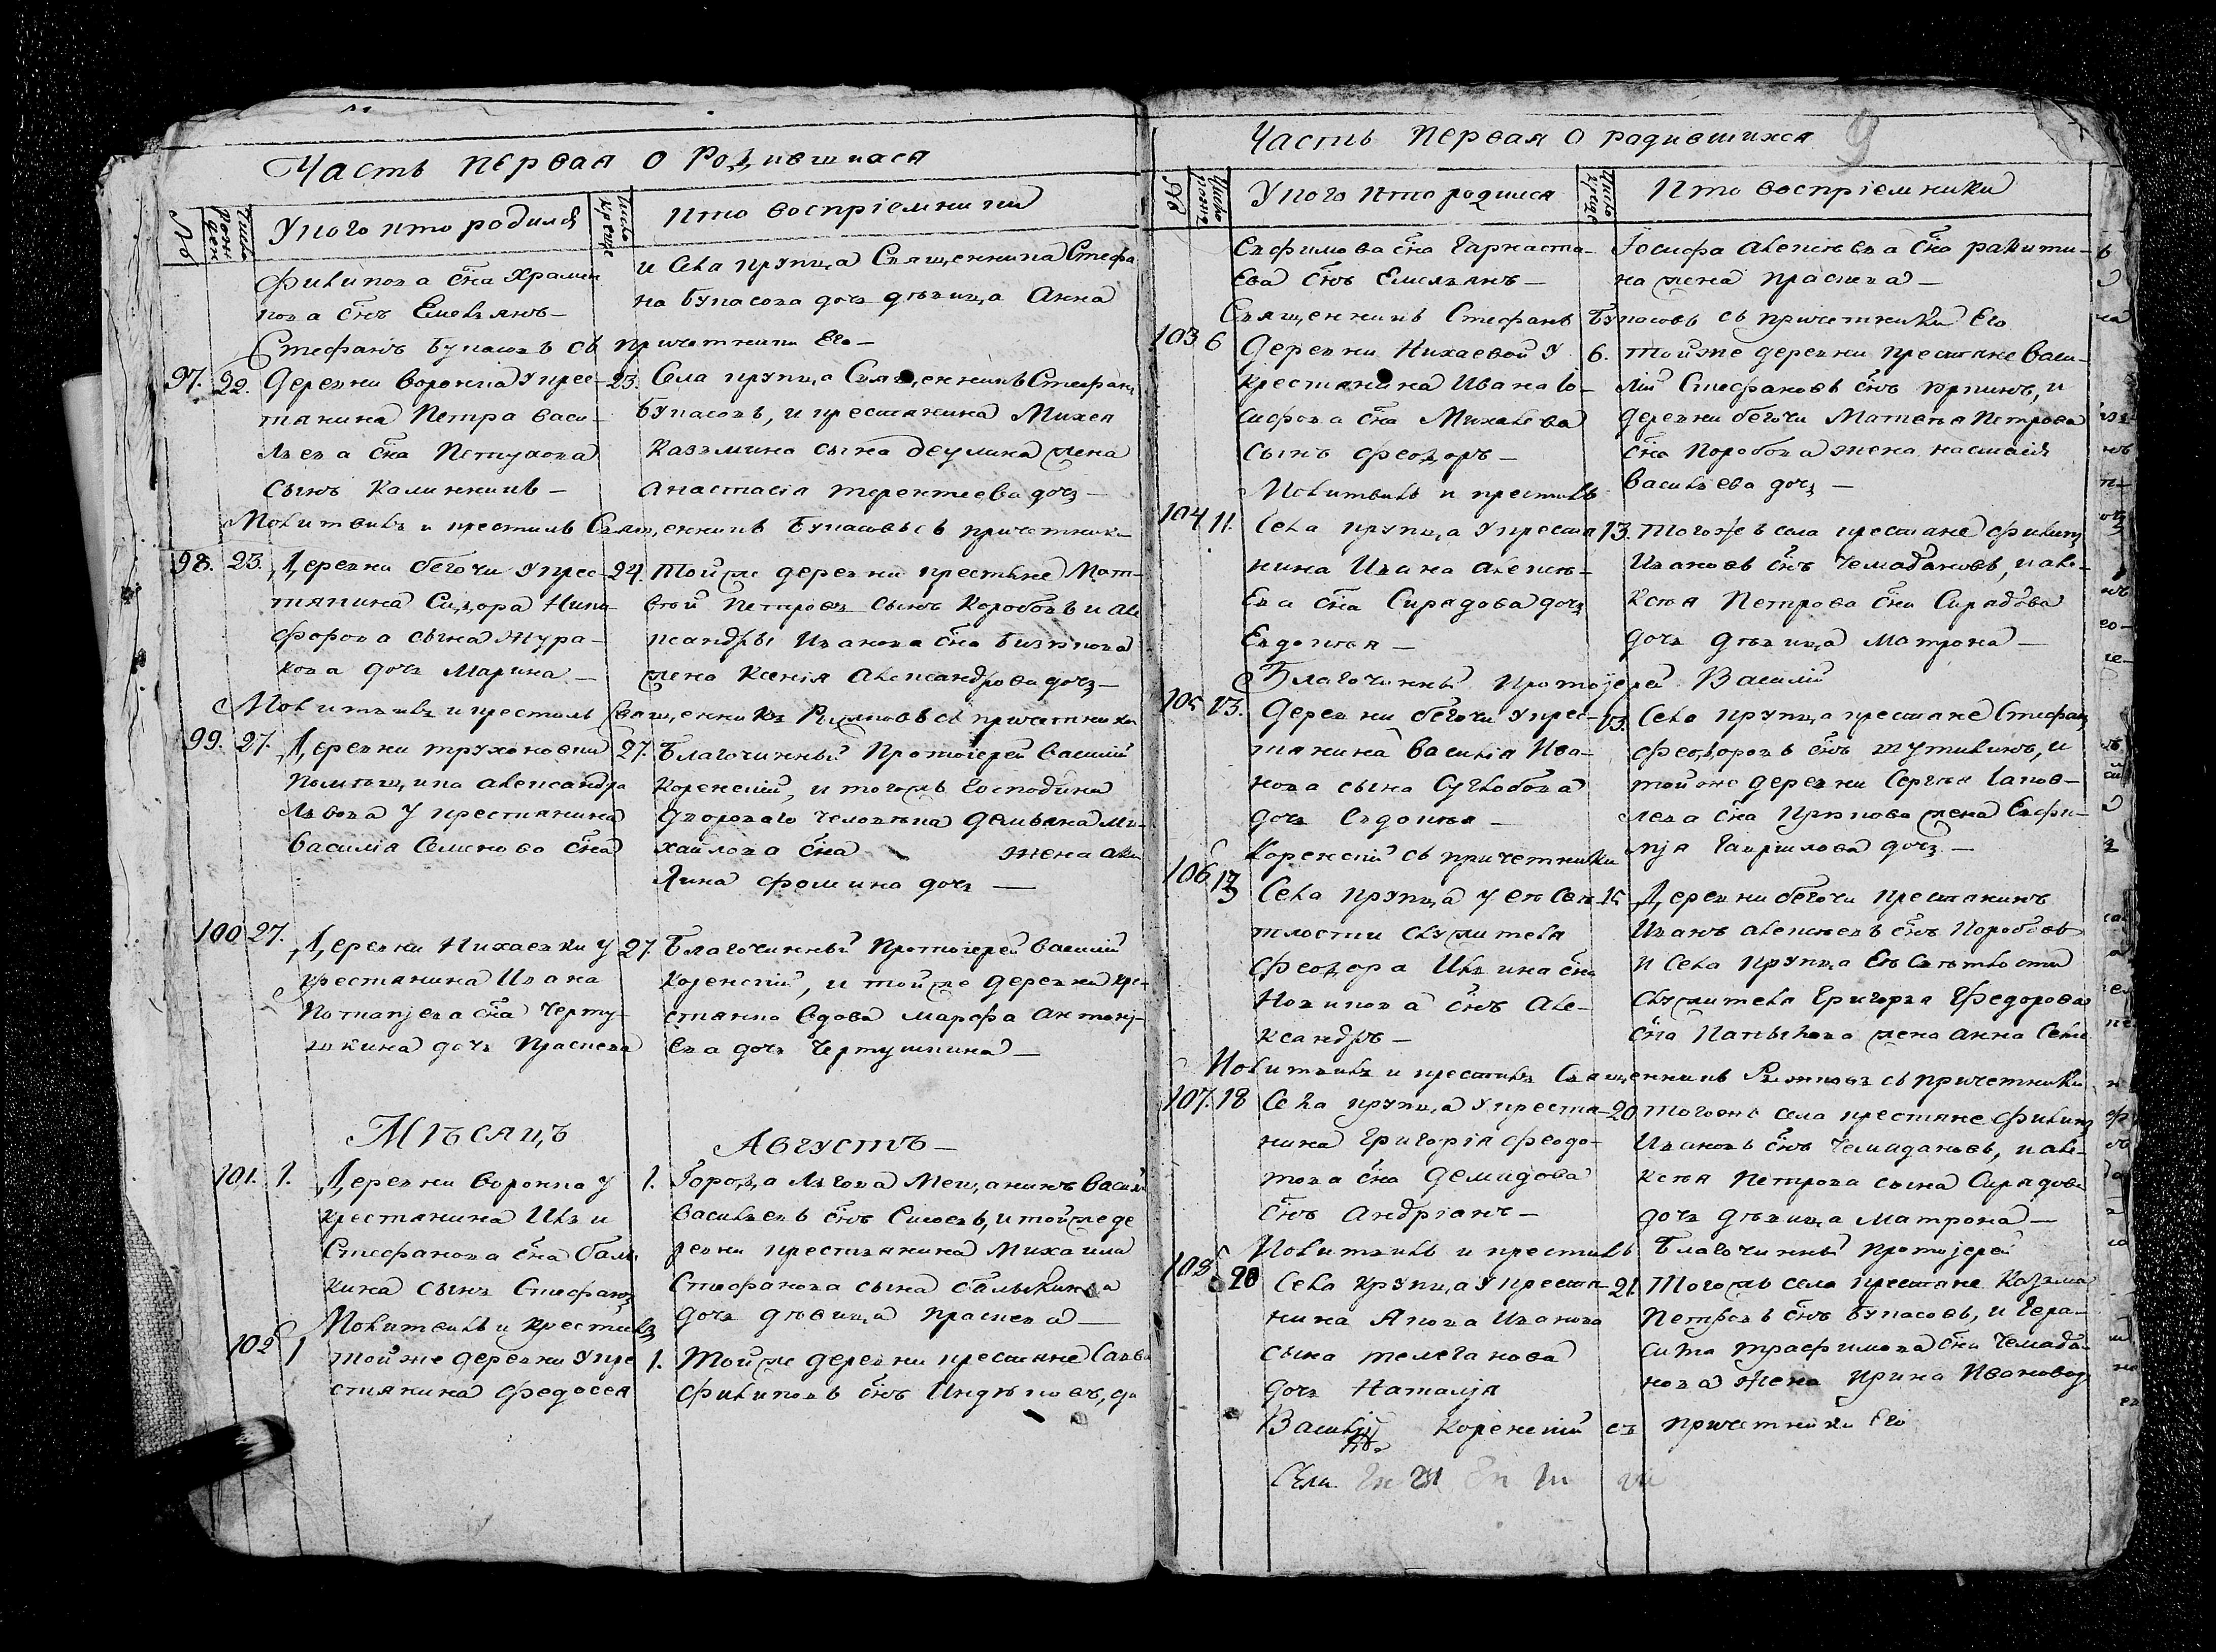 Часть первая о Родившихся
№ Число рожден У кого кто родился Число крещ кто воспріемники
Филипова сна Храми
кова снъ Емельянъ —
и села крупца Священника Стефа
на Букасова дочь девица Анна
Стефанъ Букасовъ съ причетники Его —
97. 22. Деревни воронка у крес-
тянина Петра васи-
льева сна Петухова
сынъ Калинникъ —
23. Села крупца Священникъ Стефанъ
Букасовъ, и крестянина Михея
Казмина сына Деулина жена
анастасія терентиева дочь —
Молитвилъ и крестилъ Священникъ Букасовъ съ причетники
98. 23. Деревни бегочи у крес-
тянина Сидора Ники-
форова сына Жура-
кова дочь Марина —
24. той же деревни крестяне Мат-
вей Петровъ сынъ Коробовъ и але
ксандры Иванова сна
жена Ксенія александрова дочь —
Молитвилъ и крестилъ Священникъ съ причетники
99. 27. Деревни
Помещика александра
Львова у крестянина
василія Семенова сна
27. Благочинный Протоіерей василий
Коренский, и тогожъ Господина
Дворового человека Демьяна Ми-
хайлова сна жена аки
лина фомина дочь —
100 27. Деревни Нихаевки у
крестянина Ивана
Потапьева сна Черту-
шкина дочь Праскева
27. Благочинный Протоіерей василий
Коренский, и той же деревни кре-
стянка вдова марфа антонь-
ева дочь Чертушкина —
Месяцъ Августъ —
101. 1. Деревни воронка у
крестянина Ильи
Стефанова сна баль
кина сынъ Стефанъ
1. Города Льгова Мещанинъ васил
васильевъ снъ Сысоевъ, и той же де
ревни крестьянина Михаила
Стефанова сына
дочь девица праскева —
Молитвилъ и крестилъ
102 1 той же деревни у кре
стянина Федосея
1. той же деревни крестяне Савва
филиповъ снъ
Часть первая о родившихся 9
№ Число рожд У кого кто родился Число крещ кто воспріемники
Ефимова сна Гарнаста-
ева снъ Емельянъ —
Іосифа алексеева сна ракити-
на жена праскева —
Священникъ Стефанъ Букасовъ съ причетники Его
103 6 Деревни Нихаевой у
крестянина Ивана Іо-
сифова сна Михалева
сынъ феодоръ —
6. той же деревни крестяне васи-
лий Стефановъ снъ и
деревни бегочи Матвея Петрова
сна Коробова жена настасія
васильева дочь —
Молитвилъ и крестилъ
104 11. Села крупца у крестя
нина Ивана алексе-
ева сна Сирядова дочь
Евдокея —
13. тогожъ села крестяне филипъ
Ивановъ снъ Чемадановъ, и але-
ксея Петрова сна Сирядова
дочь девица матрона —
Благочинный Протоіерей Василий
105 13. Деревни бегочи у крес-
тянина василія Ива-
нова сына
дочь Евдокея —
13. Села крупца крестяне Стефанъ
феодоровъ снъ шутилинъ, и
той же деревни Сергея Іаков-
лева сна жена Евфи-
мія Гаврилова дочь —
Коренский съ причетники
106 13 Села крупца у ея Све-
тлости служителя
феодора Ильина сна
Новикова снъ але-
ксандръ —
15 Деревни бегочи крестянинъ
Иванъ алексеевъ снъ Коробовъ
и села крупца Ея Светлости
служителя Григорья Федорова
сна жена анна Семе
Молитвилъ и крестилъ Священникъ съ причетники
107. 18 Села крупца у крестя-
нина Григорія феодо-
това сна Демидова
снъ андріанъ —
20 тогожъ села крестяне филипъ
Ивановъ снъ Чемадановъ, и але-
ксея Петрова сына Сирядова
дочь девица матрона —
Молитвилъ и крестилъ Благочинный протоіерей
108 20 Села крупца у крестя-
нина Якова Иванова
сына телеганова
дочь Наталія
21. тогожъ села крестяне Казма
Петровъ снъ Букасовъ, и Гера-
сима трафимова сна Чемада-
нова жена ирина Иванова д
Василій Коренский съ причетники Его